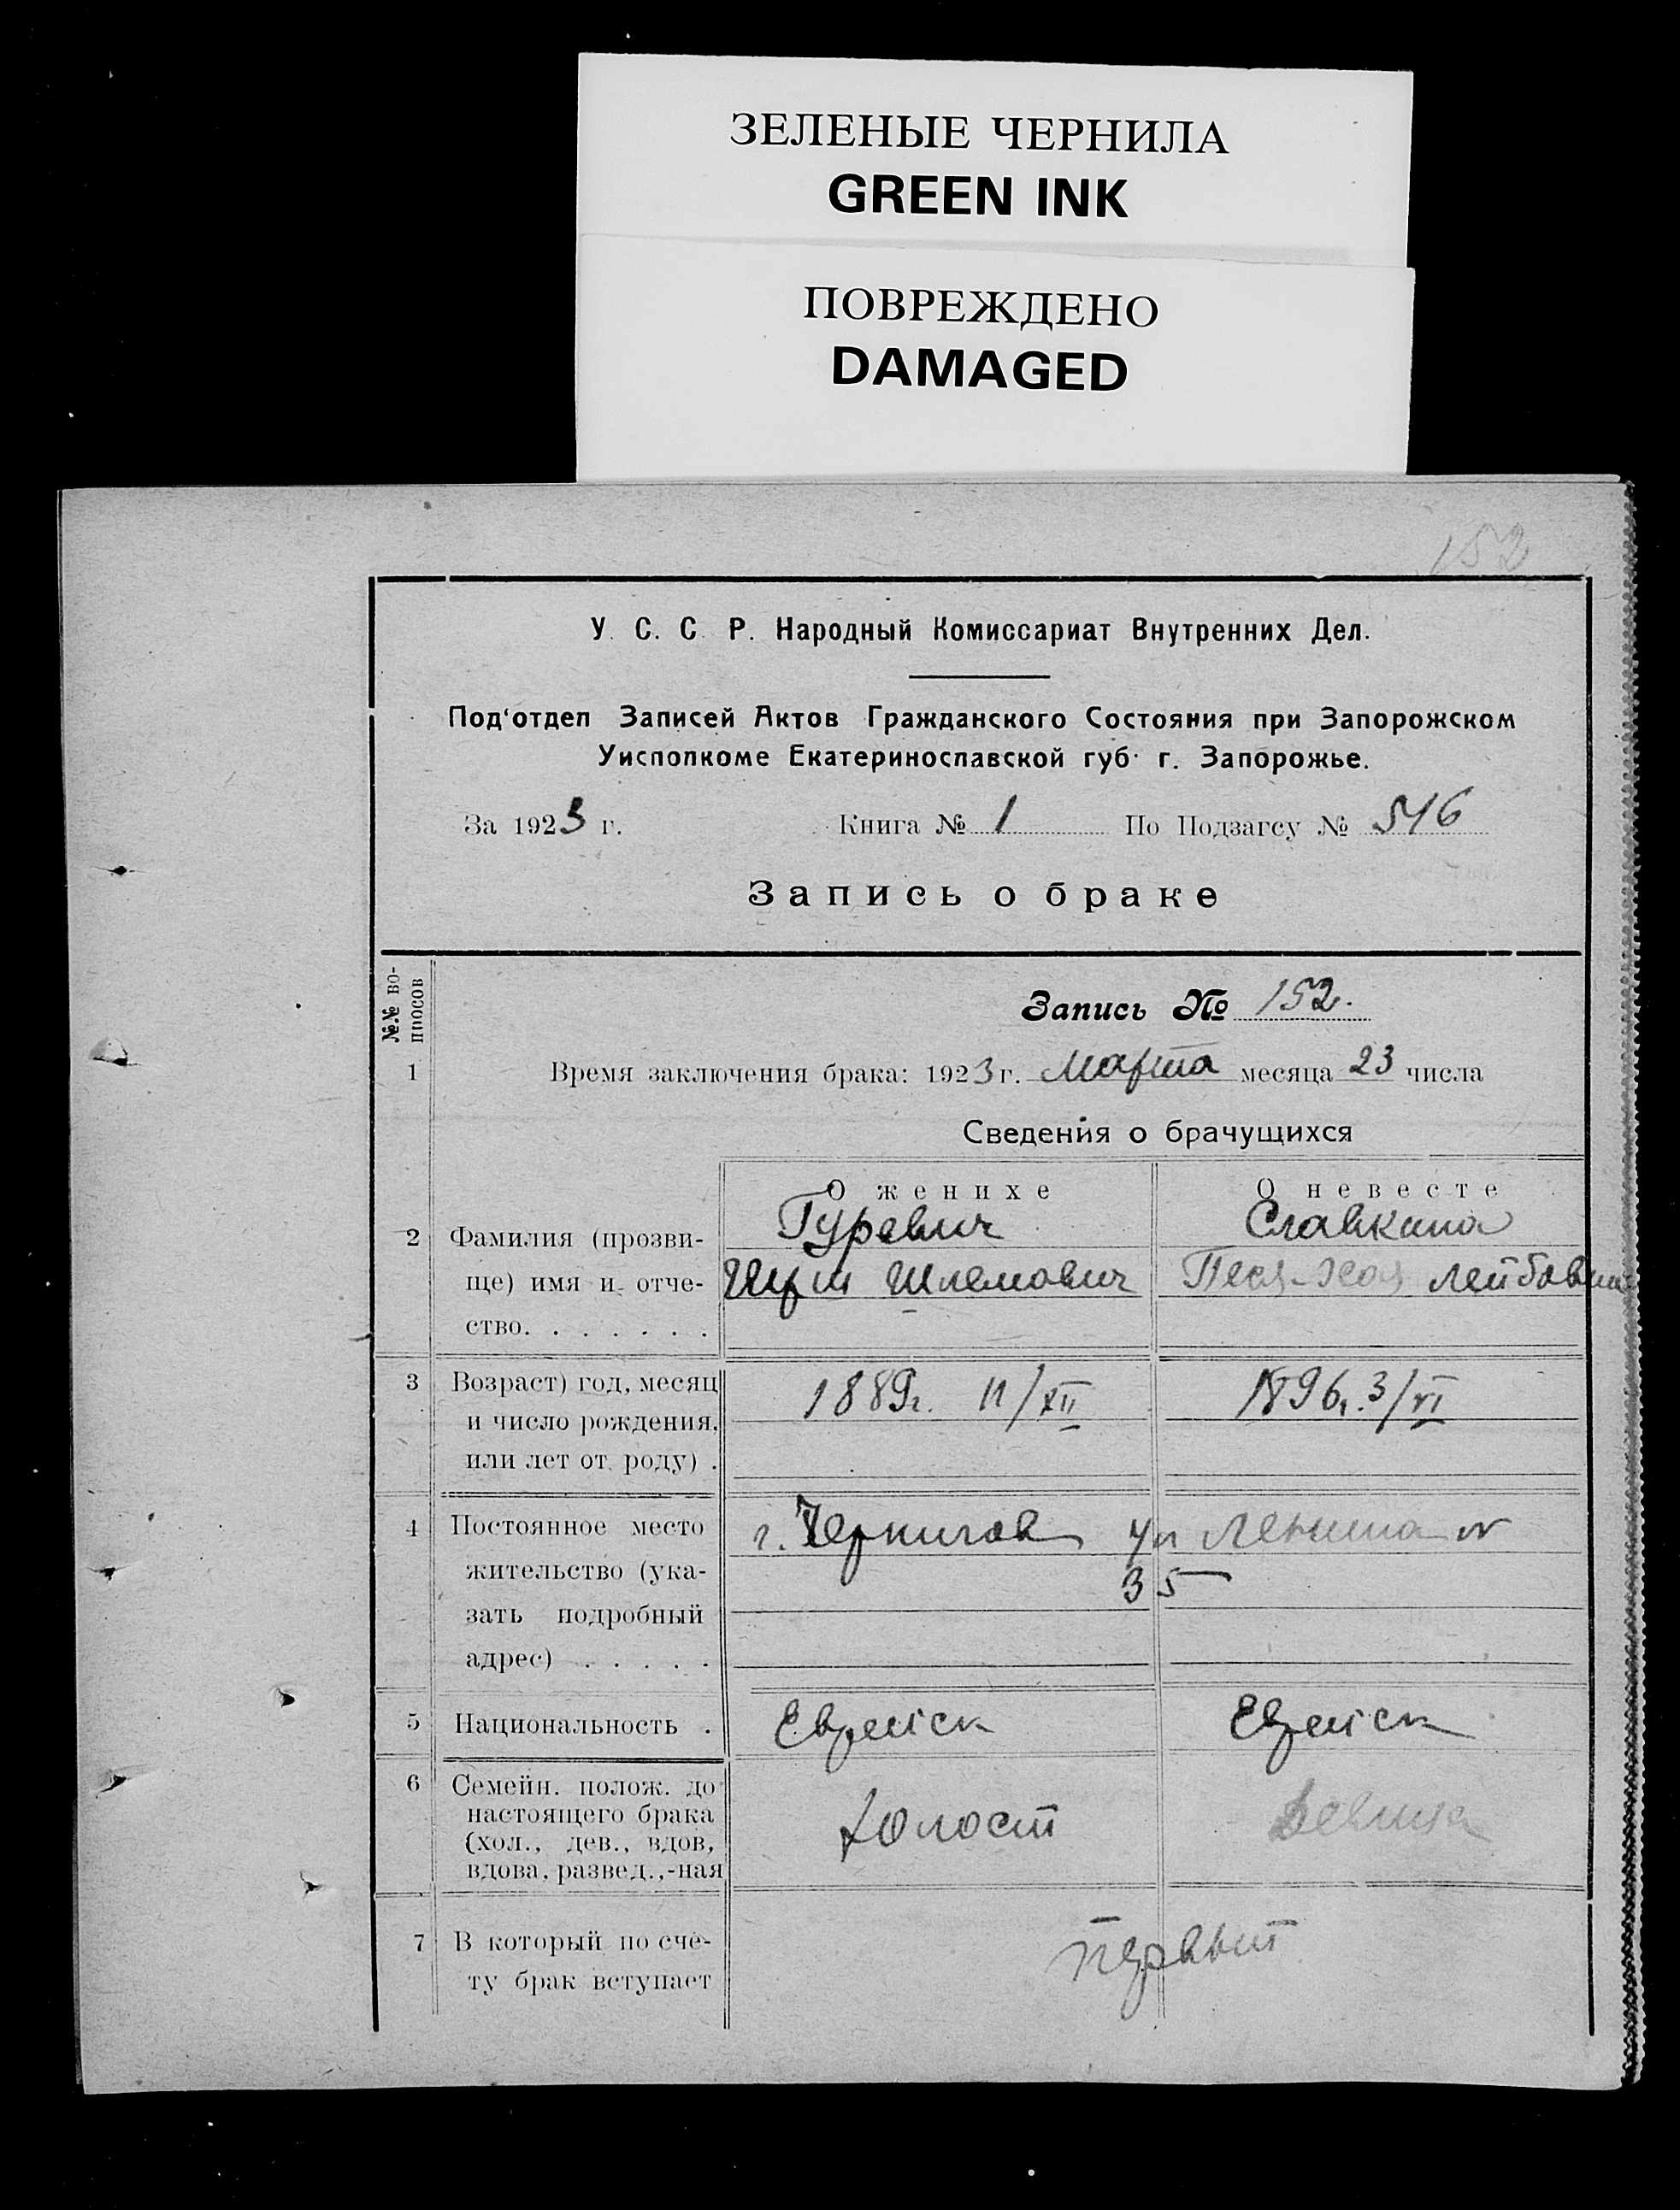 ЗЕЛЕНЫЕ ЧЕРНИЛА
GREEN INK
ПОВРЕЖДЕНО
DAMAGED
152
У. С. С. Р. Народный Комиссариат Внутренних Дел.
Под‘отдел Записей Актов Гражданского Состояния при Запорожском
Уисполкоме Екатеринославской губ. г. Запорожье.
За 1923 г. Книга № 1 По Подзагсу № 546
Запись о браке
№.№ во-
просов
Запись № 152.
1 Время заключения брака: 1923 г. Марта месяца 23 числа
Сведения о брачущихся
О женихе О невесте
2 Фамилия (прозви- Гуревич Славкина
ще) имя и отче- Шлемович Песя-Хая Лейбовна
ство. . . . . . .
3 Возраст) год, месяц 1889г. 11/XII 1896г. 3/VI
и число рождения,
или лет от роду) .
4 Постоянное место г. Чернигов ул Ленина №
жительство (ука- 35
зать подробный
адрес) . . . . .
5 Национальность . Еврейск Еврейск
6 Семейн. полож. до
настоящего брака Холост Девица
(хол., дев., вдов,
вдова, развед.,-ная
7 В который по сче- первый
ту брак вступает